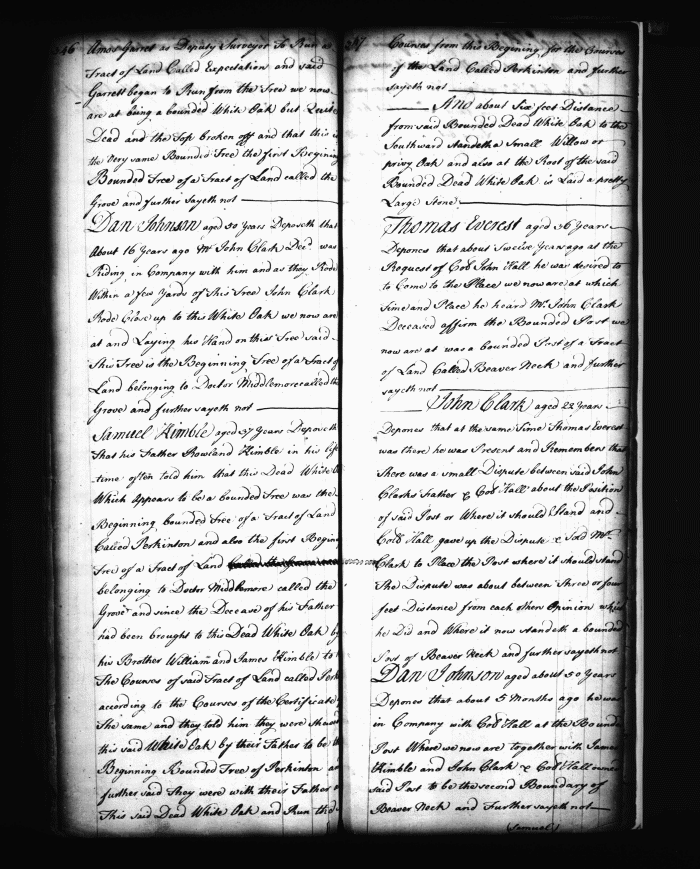 246
Amos Garret as Deputy Surveyor To Run a
Tract of Land Called Expectation and said
Garrett began to Run from the Tree we now
are at being a bounded White Oak but Quite
Dead and the Top broken off and that this is
the Very same Bounded Tree the first Begining
Bounded Tree of a Tract of Land called the
Grove and further sayeth not
Dan Johnson aged 50 Years Deposeth that
About 16 Years ago Mr John Clark Decd was
Riding in Company with him and as they Rode
Within a few Yards of This Tree John Clark
Rode Close up to this White Oak we now are
at and Laying his Hand on this Tree said
This Tree is the Beginning Tree of a Tract of
Land belonging to Doctor Middlemore called the
Grove and further sayeth not
Samuel Kimble aged 37 Years Deposeth
That his Father Rowland Kimble in his life
time often told him that this Dead White O
Which Appears to be a bounded Tree was the
Beginning bounded Tree of a Tract of Land
Called Perkinton and also the first Begin
Tree of a Tract of Land
belonging to Doctor Middlemore called the
Grove and since the Decease of his Father
had been brought to this Dead White Oak by
his Brother William and James Kimble to
The Courses of said Tract of Land called Perk
according to the Courses of the Certificate
The same and they told him they were shewed
this said White Oak by their Father to be the
Beginning Bounded Tree of Perkinton an
further said They were with their Father
This said Dead White Oak and Run the
247
Courses from this Begening for the Courses
of the Land Called Perkinton and further
sayeth not
And about Six feet Distance
from said Bounded Dead White Oak to the
Southward Standeth a Small Willow or
privy Oak and also at the Root of the said
Bounded Dead White Oak is Laid a pretty
Large Stone.
Thomas Everest aged 36 Years
Depones that about Twelve Years ago at the
Request of Colo John Hall he was desired to
to Come to the Place we now are at which
Time and Place he heard Mr John Clark
Deceased affirm the Bounded Post we
now are at was a bounded Post of a Tract
of Land Called Beaver Neck and further
sayeth not
John Clark aged 22 Years
Depones that at the same Time Thomas Everest
was there he was Present and Remembers that
There was a small Dispute between said John
Clarks Father & Colo Hall about the Position
of said Post or Where it should Stand and
Colo Hall gave up the Dispute & Told Mr
Clark to Place the Post where it should stand
The Dispute was about between Three or four
feet Distance from each others Opinion which
he Did and Where it now standeth a bounded
Post of Beaver Neck and further sayeth not
Dan Johnson aged about 50 Years
Depones that about 5 Months ago he was
in Company with Colo Hall at the Bounded
Post Where we now are together with James
Kimble and John Clark & Colo Hall owned
said Post to be the second Boundary of
Beaver Neck and Further sayeth not
(Samuel)